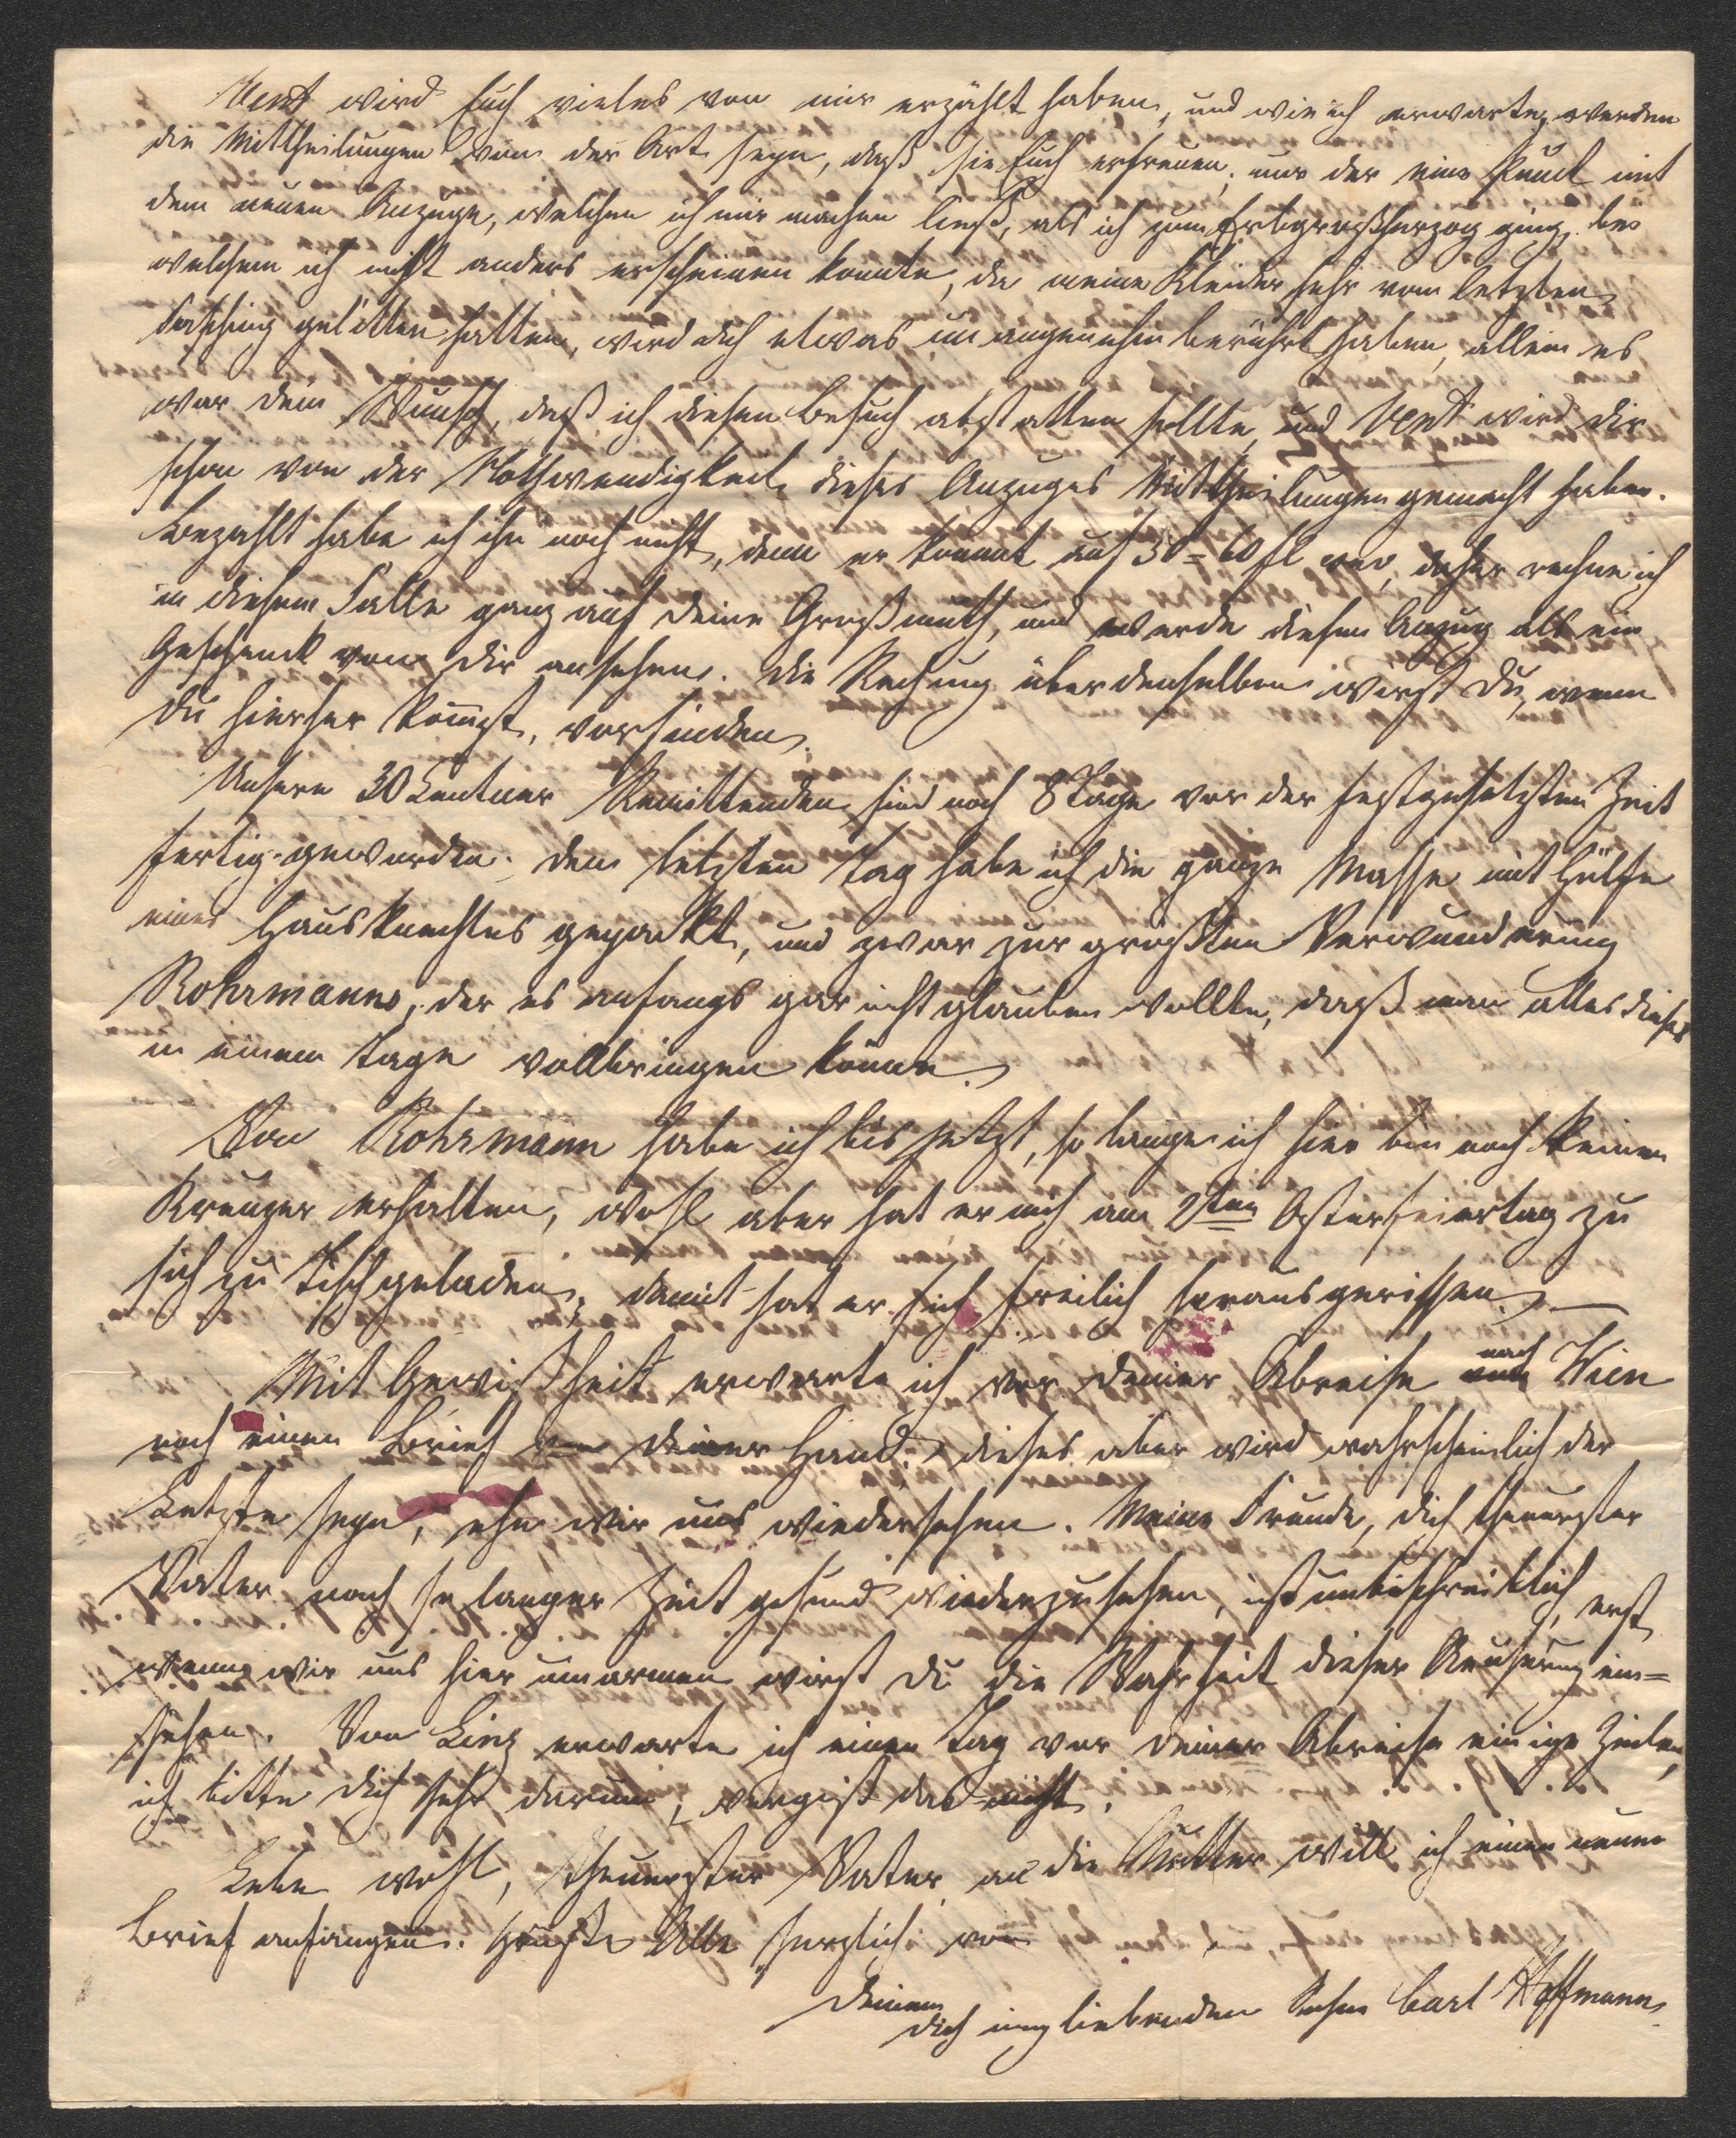 Vent wird Euch vieles von mir erzählt haben, und wie ich erwarte, werden
die Mittheilungen von der Art seyn, daß sie Euch erfreuen; nur der eine Punct mit
dem neuen Anzuge, welchen ich mir machen ließ, als ich zum Erbgroßherzog ging, bei
welchem ich nicht anders erscheinen konnte, da meine Kleider sehr vom letzten
Fasching gelitten hatten, wird dich etwas unangenehm berührt haben, allein es
war dein Wunsch, daß ich diesen Besuch abstatten sollte, und Vent wird dir
schon von der Nothwendigkeit dieses Anzuges Mittheilungen gemacht haben.
Bezahlt habe ich ihn noch nicht, denn er kommt auf 50=60 fl, daher rechne ich
in diesem Falle ganz auf deine Großmuth, und werde diesen Anzug als ein
Geschenk von dir ansehen. Die Rechnung über denselben wirst du, wenn
du hierher kommst, vorfinden.
Unsere 30 Centner Remittenden sind noch 8 Tage vor der festgesetzten Zeit
fertig geworden; den letzten Tag habe ich die ganze Masse mit Hülfe
eines Hausknechtes gepackt, und zwar zur größten Verwunderung
Rohrmanns, der es anfangs gar nicht glauben wollte, daß man alles dieses
in einem Tage vollbringen könne.
Von Rohrmann habe ich bis jetzt, so lange ich hier bin noch keinen
Kreuzer erhalten, wohl aber hat er mich am 2ten Osterfeiertag zu
sich zu Tisch geladen, damit hat er sich freilich herausgerissen. —
Mit Gewißheit erwarte ich vor deiner Abreise nach Wien
noch einen Brief von deiner Hand, dieses aber wird wahrscheinlich der
Letzte seyn, ehe wir uns wiedersehen. Meine Freude, dich theuerster
Vater nach so langer Zeit gesund wiederzusehen, ist unbeschreiblich, erst
wenn wir uns hier umarmen wirst du die Wahrheit dieser Aeußerung ein=
sehen. Von Linz erwarte ich einen Tag vor deiner Abreise einige Zeilen,
ich bitte dich sehr darum, vergiß das nicht.
Lebe wohl, theuerster Vater, an die Mutter will ich einen neuen
Brief anfangen. Grüße Alle herzlich von
Deinem
dich innig liebenden Sohne Carl Hoffmann